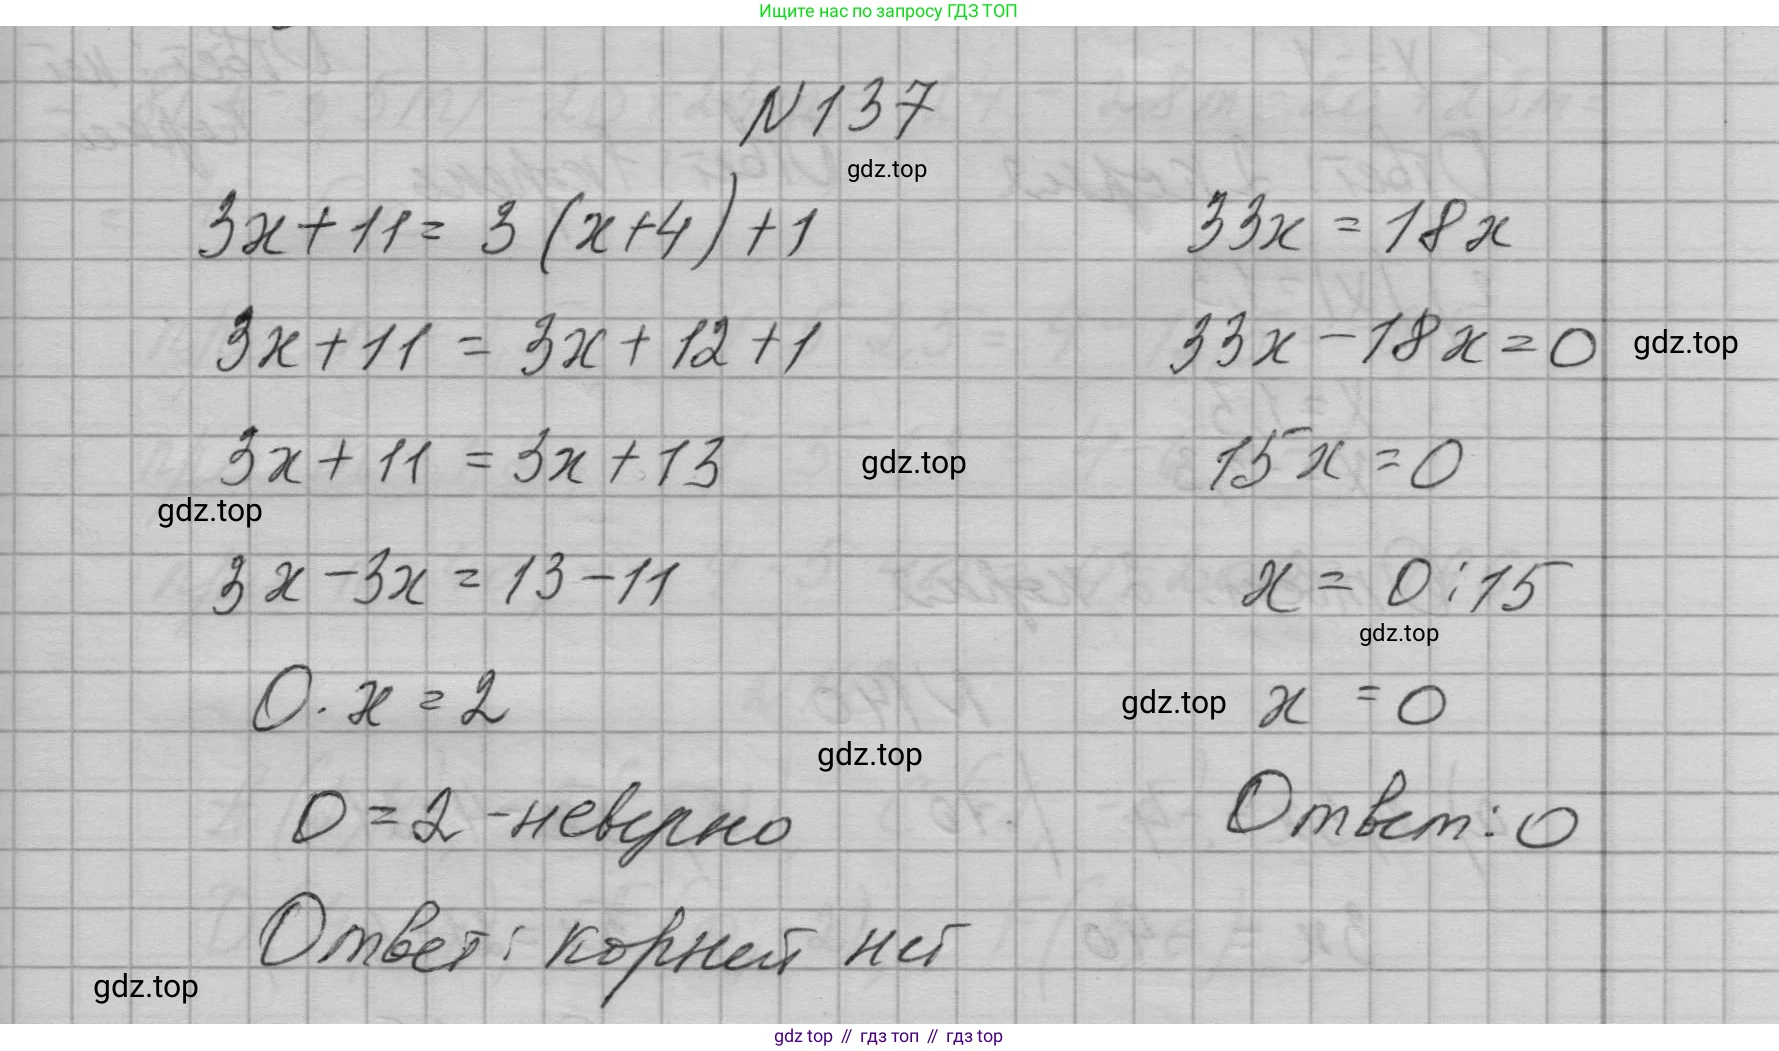 Ищите нас по запросу ГДЗ ТОП
N137
gdz.top
3x+11= 3(x+4)+1
3x+11 = 3x+12+1
3x+11 =3x+13
gdz.top
gdz.top
3x-3x=13-11
0·x=2
gdz.top
0=2 -неверно
Ответ: корней нет
gdz.top
33x=18x
33x-18x=0 gdz.top
15x=0
x= 0:15
gdz.top
gdz.top x=0
Ответ: 0
gdz top // гдз топ // гдз top